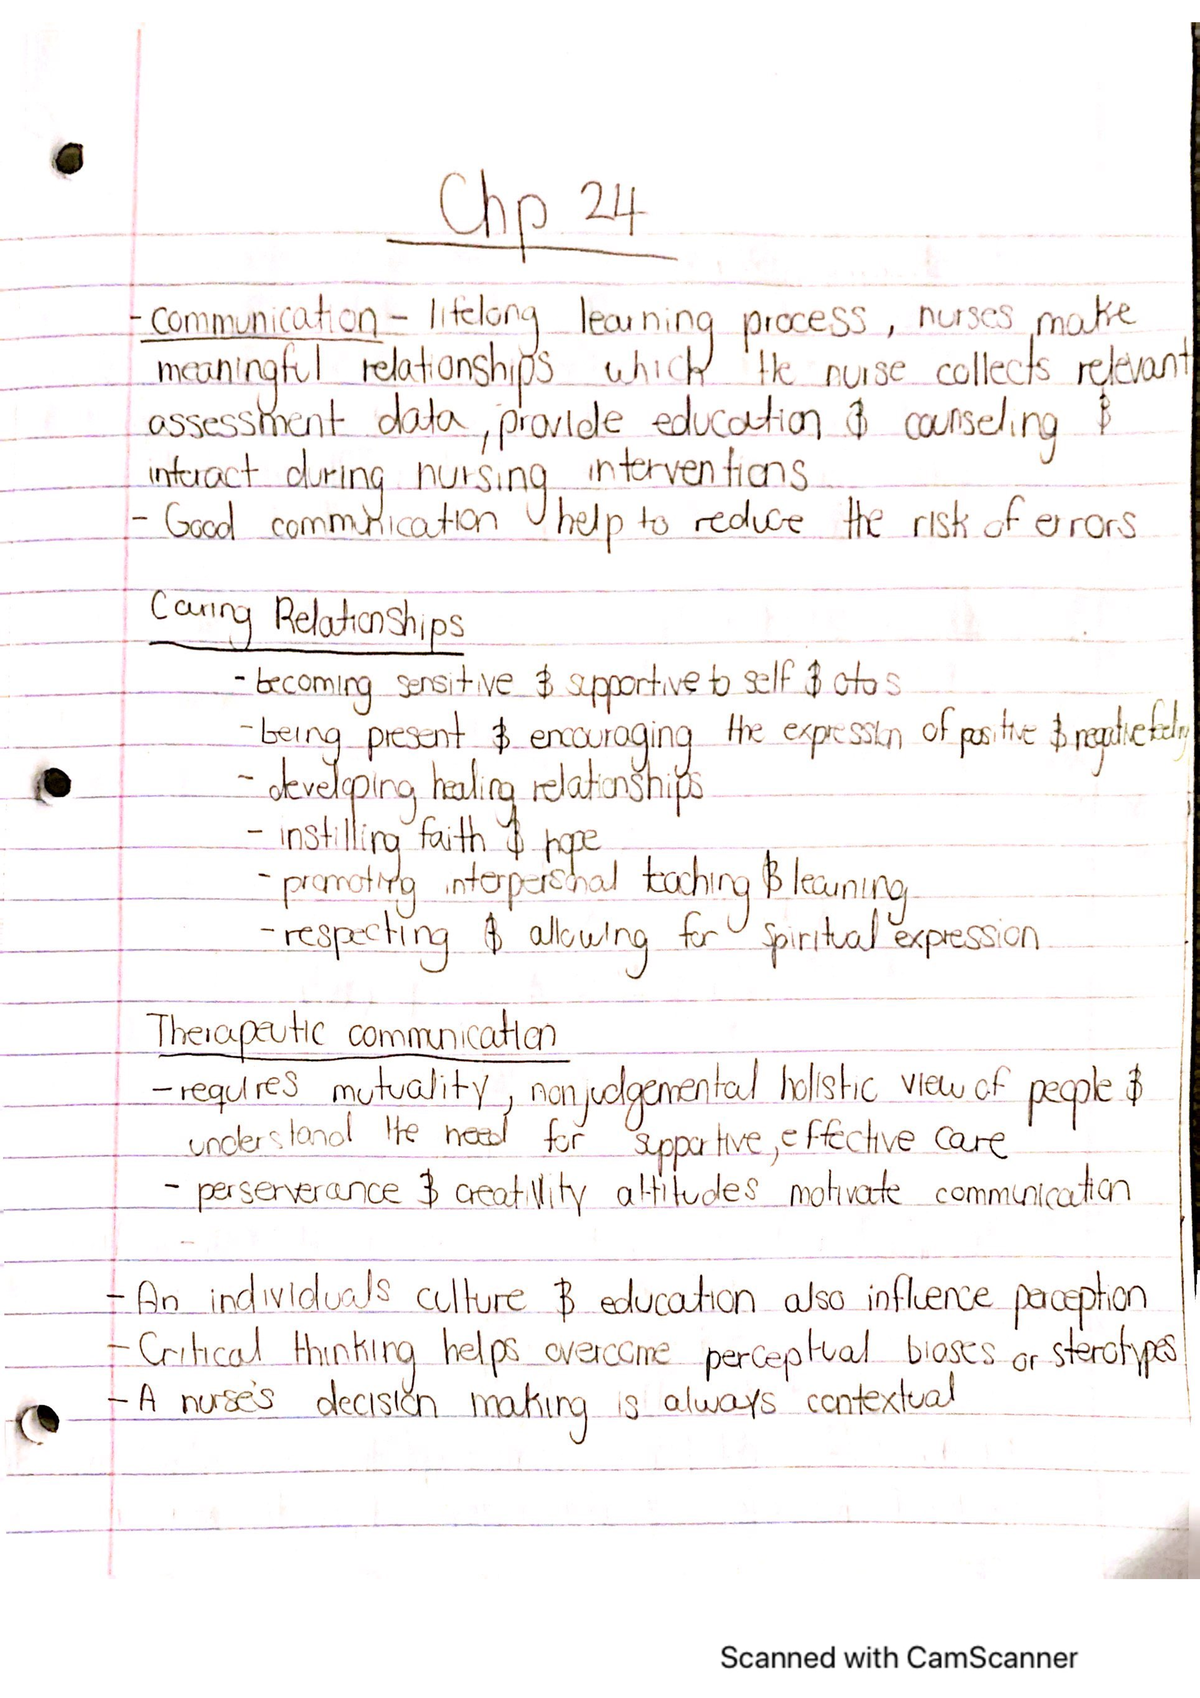 Chp 24
- communication - lifelong learning process, nurses make
meaningful relationships which the nurse collects relevant
assessment data, provide education & counseling &
interact during nursing interventions
- Good communication help to reduce the risk of errors
Caring Relationships
- becoming sensitive & supportive to self &
- being present & encouraging the expression of positive & negative
- developing healing relationships
- instilling faith & hope
- promoting interpersonal teaching & learning
- respecting & allowing for spiritual expression
Therapeutic communication
- requires mutuality, nonjudgemental holistic view of people &
understand the need for supportive, effective care
- perserverance & creativity attitudes motivate communication
- An individuals culture & education also influence perception
- Critical thinking helps overcome perceptual biases or sterotypes
- A nurse's decision making is always contextual
Scanned with CamScanner